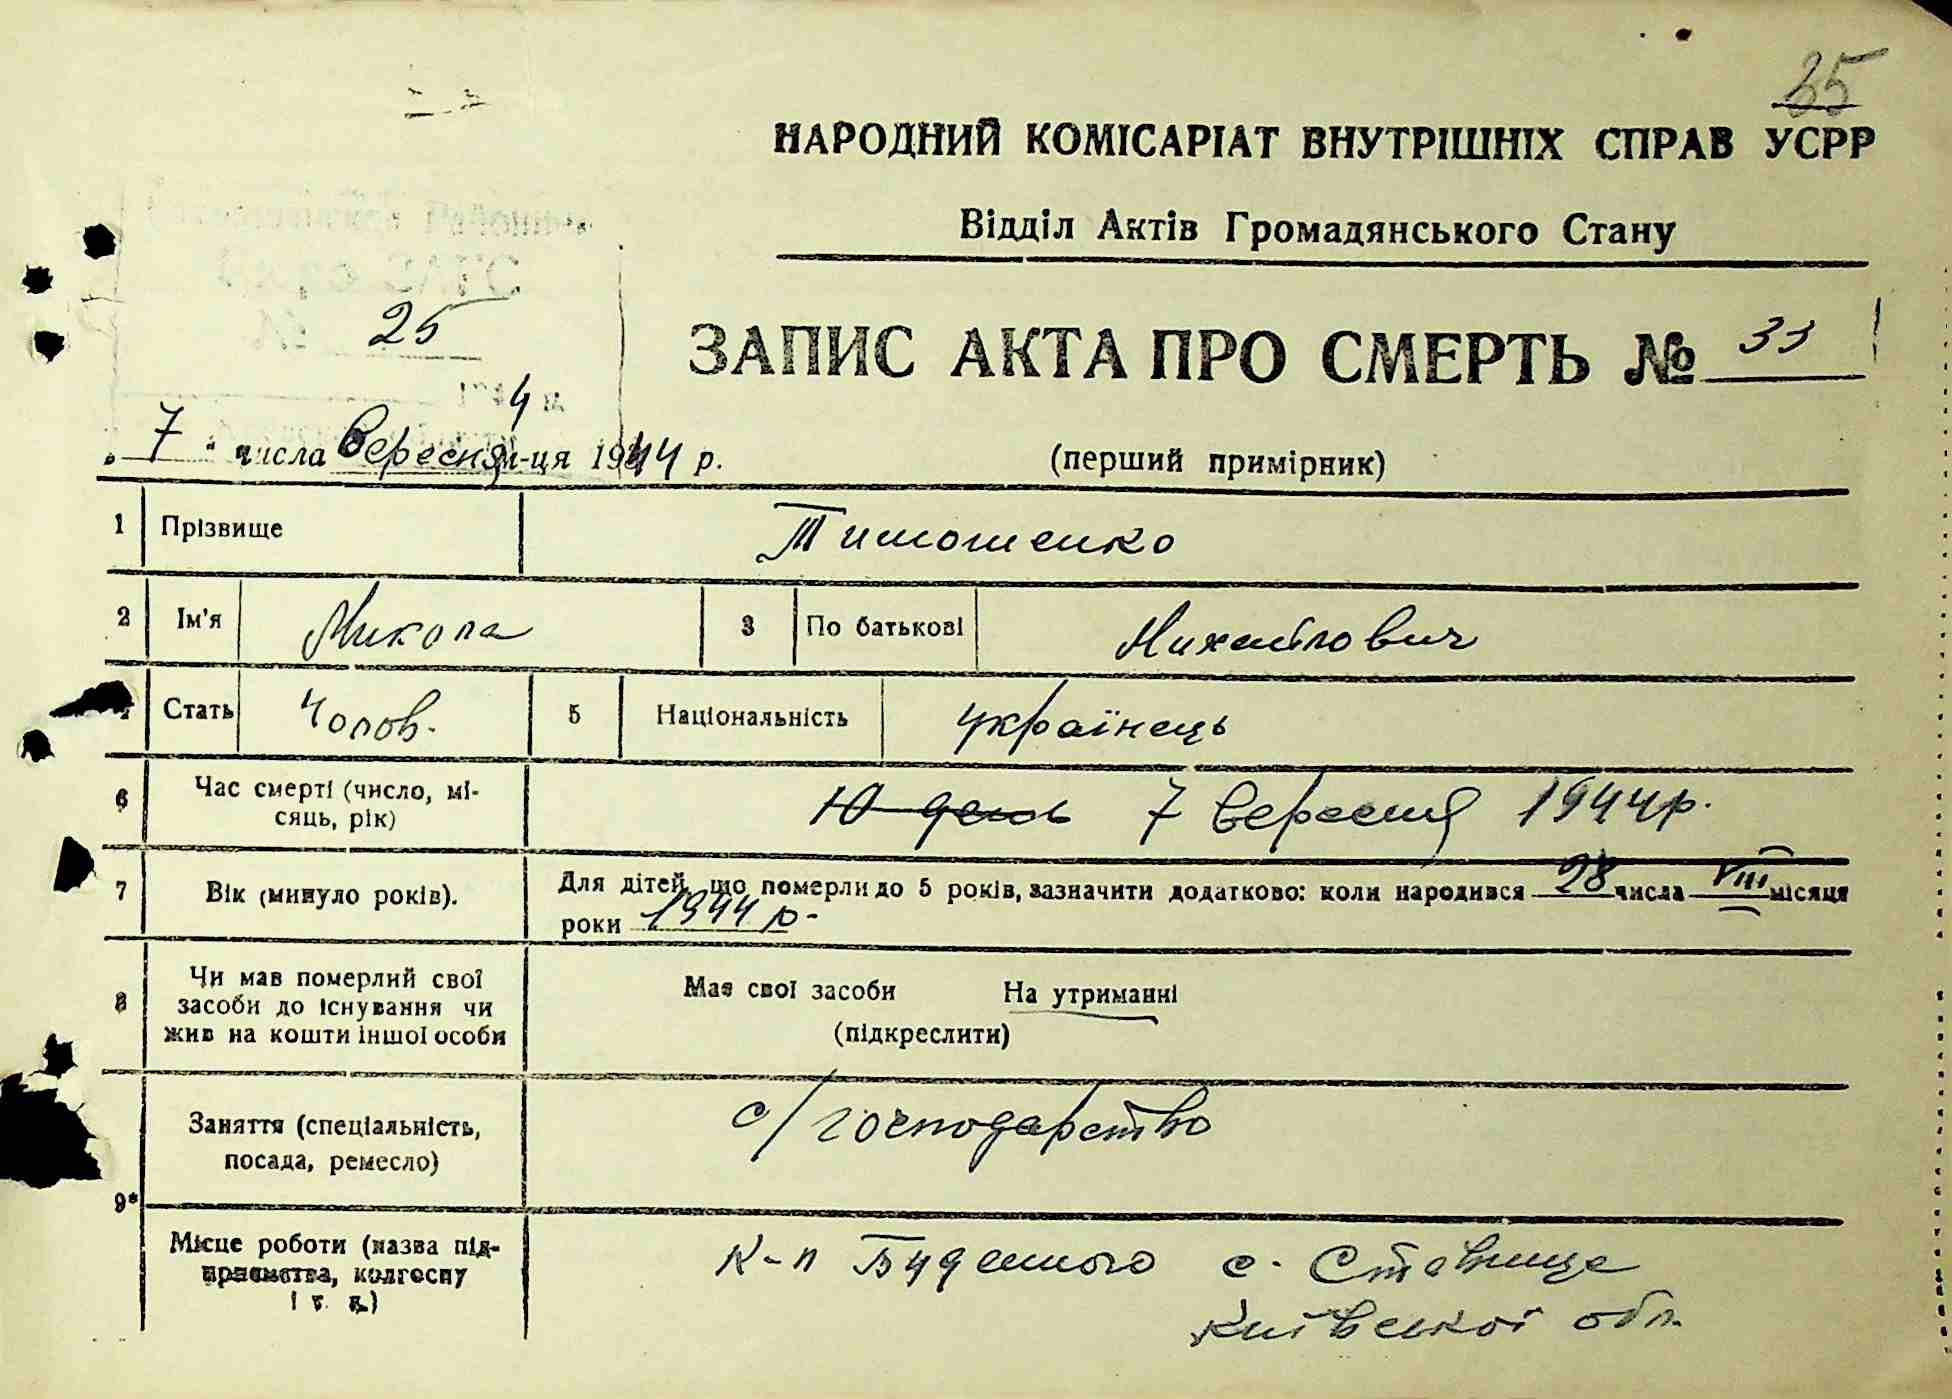 35
НАРОДНИЙ КОМІСАРІАТ ВНУТРІШНІХ СПРАВ УСРР
Відділ Актів Громадянського Стану
25
ЗАПИС АКТА ПРО СМЕРТЬ № 33
„ 7 " числа Вересня м-ця 1944 р.
(перший примірник)
1 Прізвище Тимошенко
2 Ім'я Микола 3 По батькові Михайлович
Стать Чолов. 5 Національність українець
6 Час смерті (число, мі-
сяць, рік) 7 Вересня 1944 р.
7 Вік (минуло років). Для дітей, що померли до 5 років, зазначити додатково: коли народився 28 числа VIII місяця
роки 1944 р.
8 Чи мав померлий свої
засоби до існування чи
жив на кошти іншої особи
Має свої засоби На утриманні
(підкреслити)
9* Заняття (спеціальність,
посада, ремесло) с/господарство
Місце роботи (назва під-
приємства, колгоспу
і т. д.)
К-п Буденного с. Ставище
Київської обл.